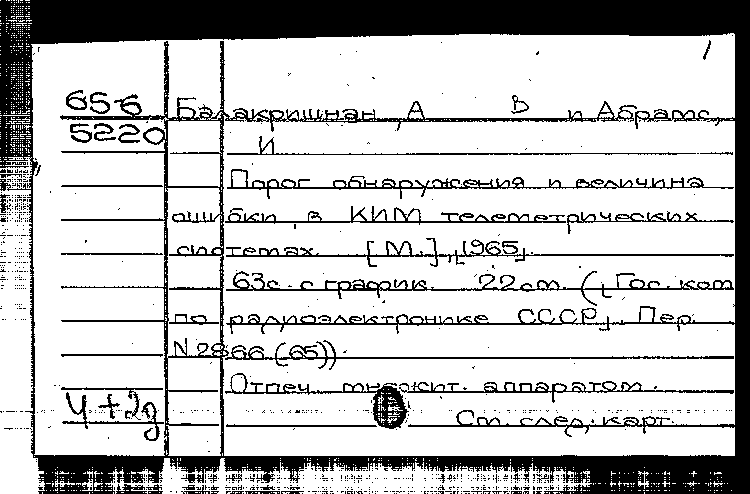 1
65-6
5220
Балакришнан, А В и Абрамс,
И
Порог обнаружения и величина
ошибки в КИМ телеметрических
системах. [М.], [1965]
63с. с график. 22см. ([Гос. ком
по радиоэлектронике СССР]. Пер.
N 2866 (65))
Отпеч. множит. аппаратом.
Ч+2д
См. след. карт.